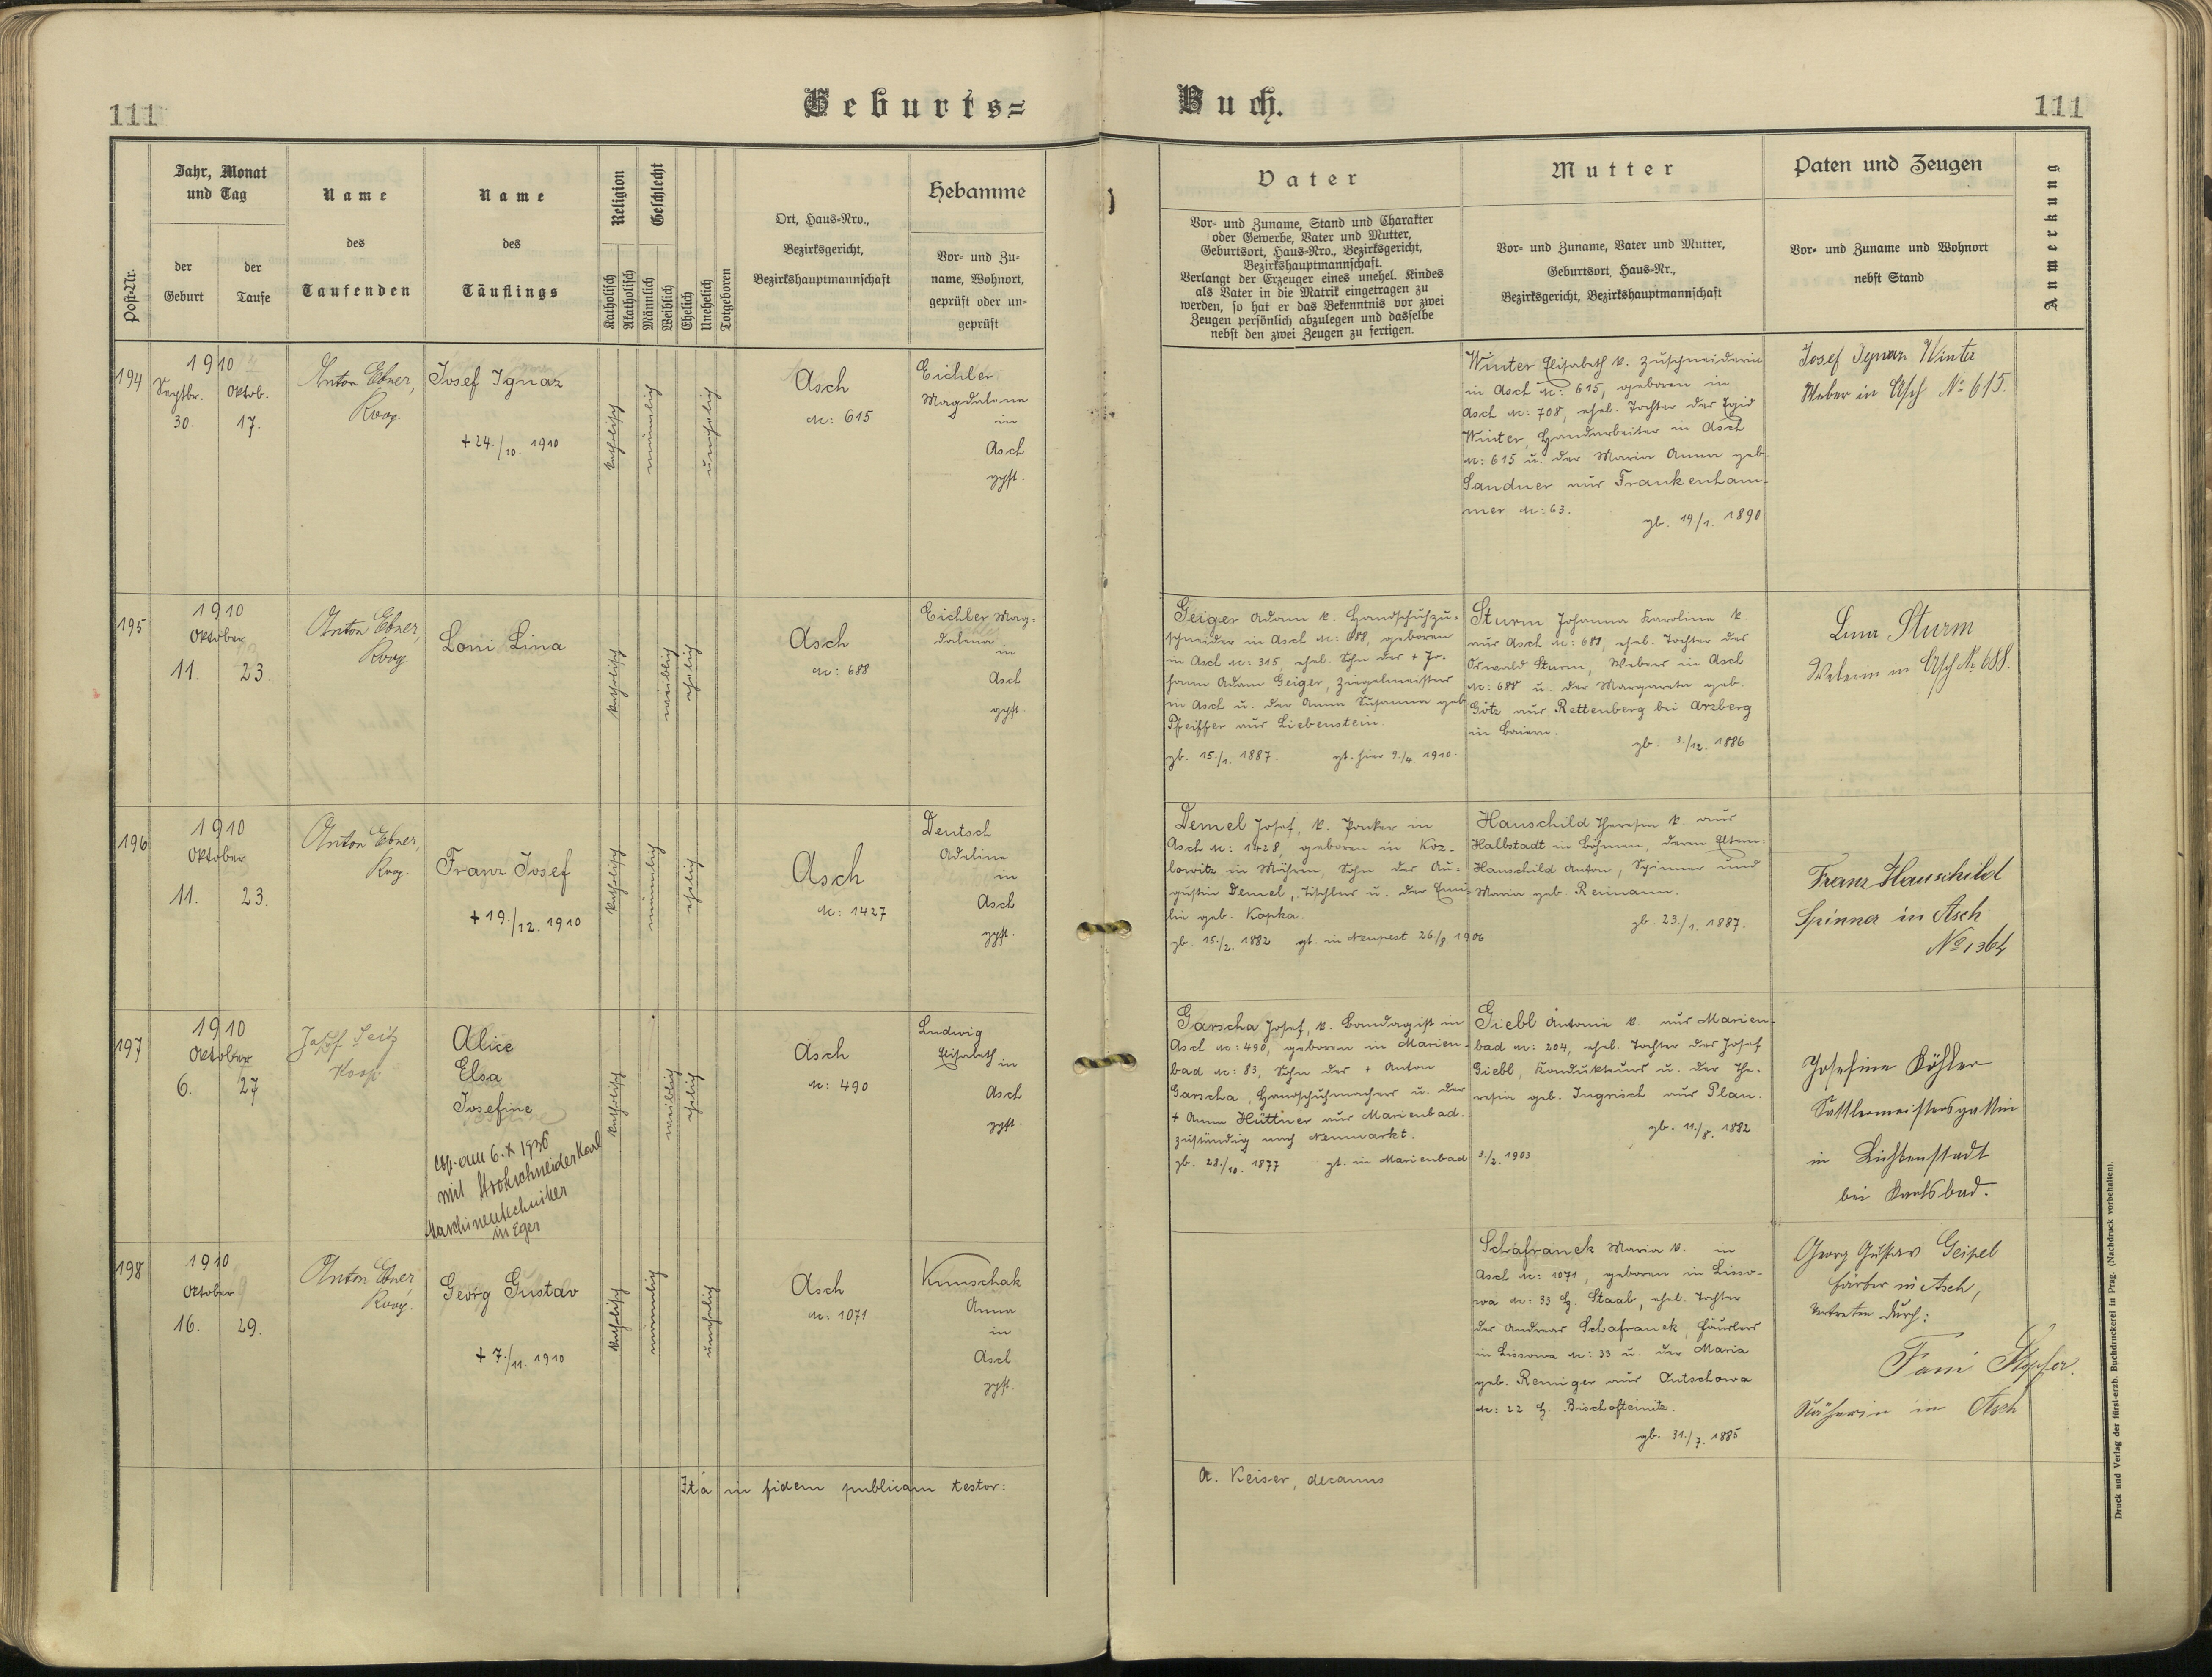 111
Geburts=
Buch.
111
Post-Nr.
Jahr, Monat
und Tag
der
Geburt
der
Taufe
Name
des
Taufenden
Name
des
Täuflings
Religion
Katholisch
Akatholisch
Geschlecht
Männlich
Weiblich
Ehelich
Unehelich
Totgeboren
Ort, Haus-Nro.,
Bezirksgericht,
Bezirkshauptmannschaft
Hebamme
Vor- und Zu-
name, Wohnort,
geprüft oder un-
geprüft
Vater
Vor- und Zuname, Stand und Charakter
oder Gewerbe, Vater und Mutter,
Geburtsort, Haus-Nro., Bezirksgericht,
Bezirkshauptmannschaft.
Verlangt der Erzeuger eines unehel. Kindes
als Vater in die Matrik eingetragen zu
werden, so hat er das Bekenntnis vor zwei
Zeugen persönlich abzulegen und dasselbe
nebst den zwei Zeugen zu fertigen.
Mutter
Vor- und Zuname, Vater und Mutter,
Geburtsort, Haus-Nr.,
Bezirksgericht, Bezirkshauptmannschaft
Paten und Zeugen
Vor- und Zuname und Wohnort
nebst Stand
Anmerkung
194
1910
Septbr.
30.
Oktob.
17.
Anton Ebner,
Koop.
Josef Ignaz
+ 24./10. 1910
katholisch
männlich
unehelich
Asch
N: 615
Eichler
Magdalena
in
Asch
gpft.
Winter Elisabeth k. Zuschneiderin
in Asch N: 615, geboren in
Asch N: 708, ehel. Tochter des Egid
Winter, Handarbeiter in Asch
N: 615 u. der Maria Anna geb.
Sandner aus Frankenham-
mer N: 63.
gb. 19./1. 1890
Josef Ignaz Winter
Weber in Asch No 615.
195
1910
Oktober
11.
23.
Anton Ebner,
Koop.
Loni Lina
katholisch
weiblich
ehelich
Asch
N: 688
Eichler Mag-
dalena
in
Asch
gpft.
Geiger Adam k. Handschuhzu-
schneider in Asch N: 688, geboren
in Asch N: 315, ehel. Sohn des + Jo-
hann Adam Geiger, Ziegelmeisters
in Asch u. der Anna Susanna geb.
Pfeiffer aus Liebenstein.
gb. 15./1. 1887. gt. hier 9./4. 1910.
Sturm Johanna Karolina k.
aus Asch N: 688, ehel. Tochter des
Oswald Sturm, Webers in Asch
N: 688 u. der Margareta geb.
Götz aus Rettenberg bei Arzberg
in Baiern.
gb. 3./12. 1886
Lina Sturm
Weberin in Asch No 688.
196
1910
Oktober
11.
23.
Anton Ebner,
Koop.
Franz Josef
+ 19./12. 1910
katholisch
männlich
ehelich
Asch
N: 1427
Deutsch
Adeline
in
Asch
gpft.
Demel Josef, k. Packer in
Asch N: 1428, geboren in Koz-
lowitz in Mähren, Sohn des Au-
gustin Demel, Tischlers u. der Emi-
lie geb. Kopka.
gb. 15./2. 1882 gt. in Neupest 26./8. 1906
Hauschild Theresia k. aus
Halbstadt in Böhmen, deren Eltern:
Hauschild Anton, Spinner und
Maria geb. Reimann.
gb. 23./1. 1887.
Franz Hauschild
Spinner in Asch
No 1364
197
1910
October
6.
27
Josef Seitz
Koop
Alice
Elsa
Josefine
cop. am 6. X 1936
mit Karl
Maschinentechniker
in Eger
katholisch
weiblich
ehelich
Asch
N: 490
Ludwig
Elisabeth
in
Asch
gpft.
Garscha Josef, k. Bandagist in
Asch N: 490, geboren in Marien-
bad N: 83, Sohn des + Anton
Garscha, Handschuhmachers u. der
+ Anna Hüttner aus Marienbad.
zuständig nach Neumarkt.
gb. 28./10. 1877 gt. in Marienbad 3./2. 1903
Giebl Antonie k. aus Marien-
bad N: 204, ehel. Tochter des Josef
Giebl, Kondukteurs u. der The-
resia geb. Ingrisch aus Plan.
gb. 11./8. 1882
Josefine Köhler
Sattlermeistersgattin
in Lichtenstadt
bei Karlsbad.
198
1910
October
16.
29.
Anton Ebner
Koop.
Georg Gustav
+ 7./11. 1910
katholisch
männlich
unehelich
Asch
N: 1071
Kunschak
Anna
in
Asch
gpft.
Schafranek Maria k. in
Asch N: 1071, geboren in Lisso-
wa N: 33 b. Staab, ehel. Tochter
des Andreas Schafranek, Häuslers
in Lissowa N: 33 u. der Maria
geb. Reiniger aus Autschowa
N: 22 b. Bischofteinitz.
gb. 31./7. 1885
Georg Gustav Geipel
Färber in Asch,
vertreten durch:
Fani
Näherin in Asch
Ita in fidem publicam testor:
A. Keiser, decanus
Druck und Verlag der fürst-erzb. Buchdruckerei in Prag. (Nachdruck vorbehalten).